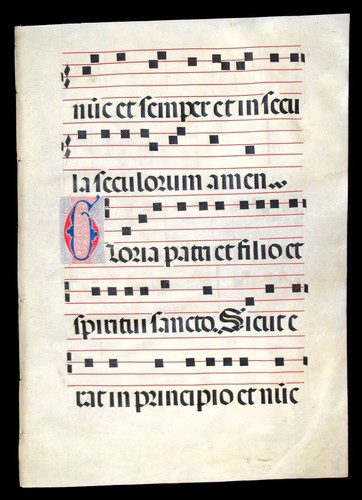 nūc et semper et in secu
la seculorum amen
Gloria patri et filio et
spiritui sancto. Sicut e
rat in principio et nūc